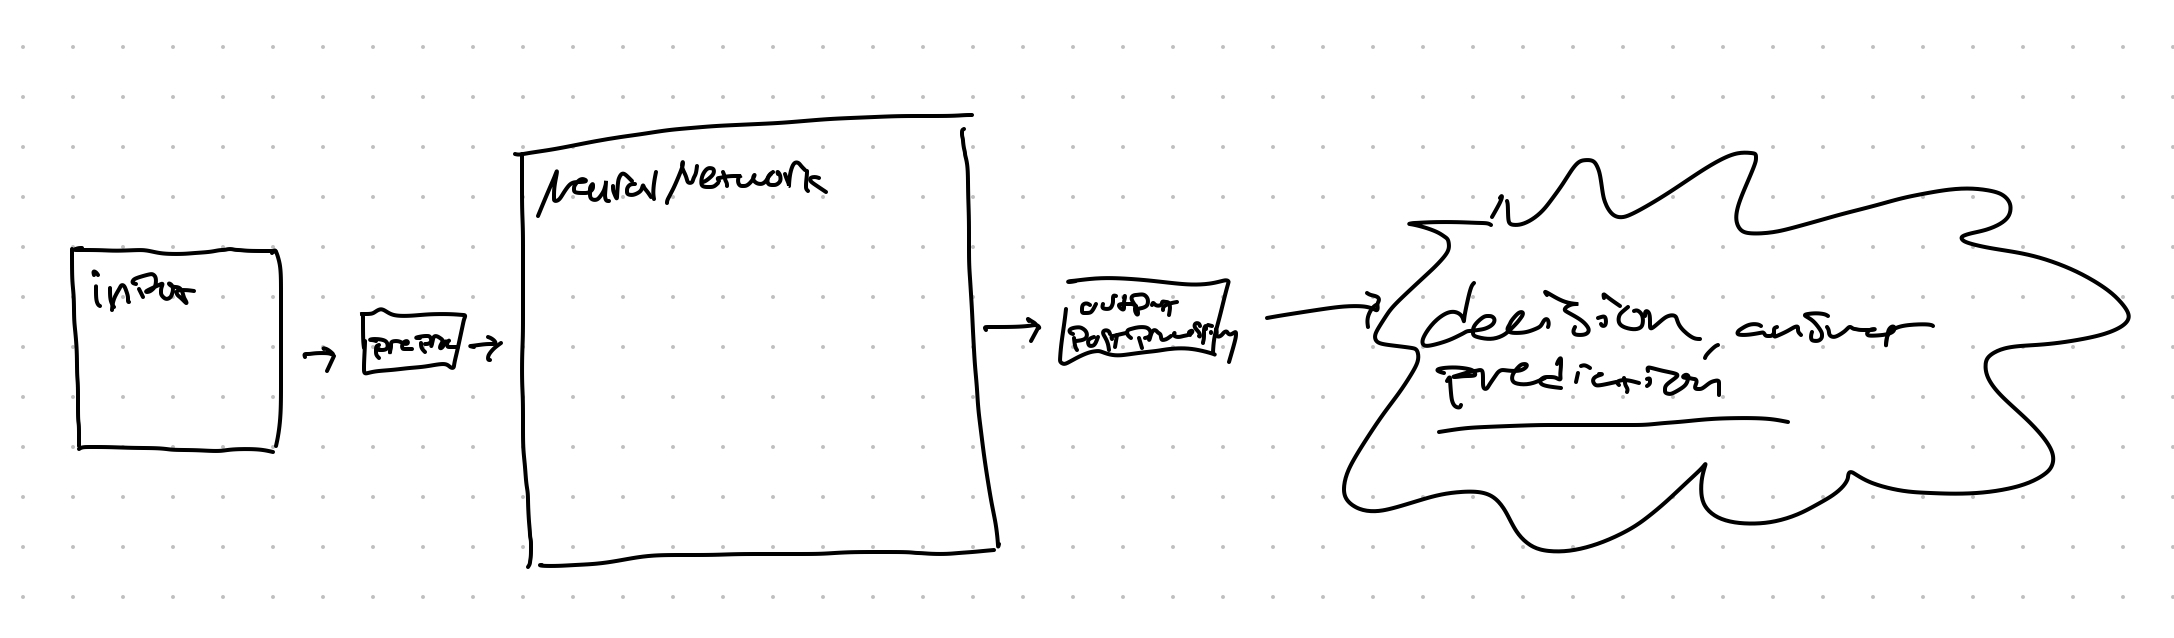 input
prepr
Neural Network
output
Postprocessing
decision, answer
prediction